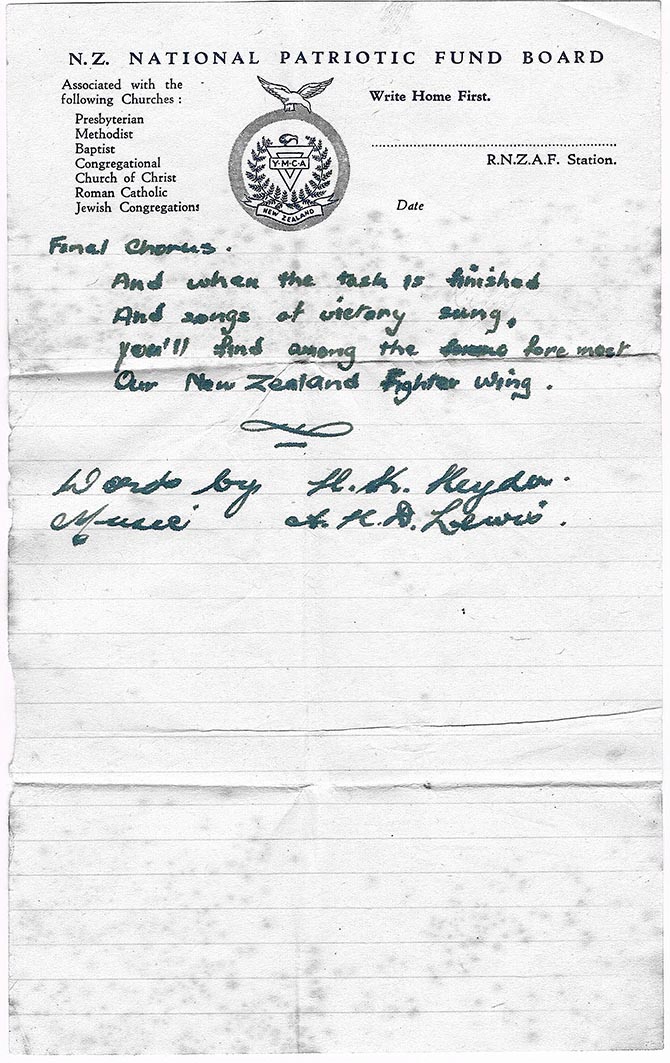 N.Z. NATIONAL PATRIOTIC FUND BOARD
Associated with the
following Churches :
Presbyterian
Methodist
Baptist
Congregational
Church of Christ
Roman Catholic
Jewish Congregations
Y·M·C·A
NEW ZEALAND
Write Home First.
R.N.Z.A.F. Station.
Date
Final Chorus.
And when the task is finished
And songs of victory sung,
You'll find among the fore most
Our New Zealand Fighter Wing.
Words by H. K.
Music A. H. D. Lewis.